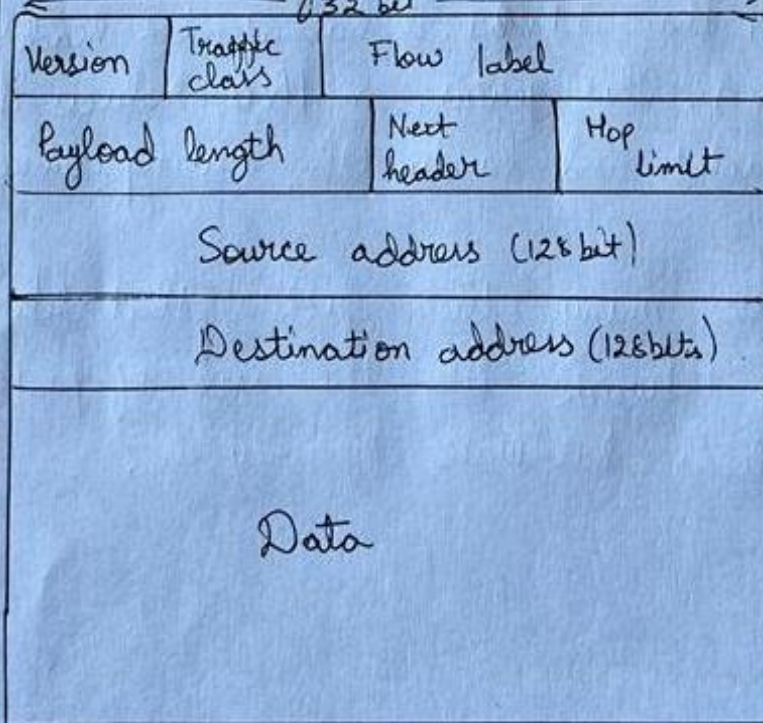 32 bit
Version
Traffic
class
Flow label
Payload length
Next
header
Hop
limit
Source address (128 bit)
Destination address (128bits)
Data